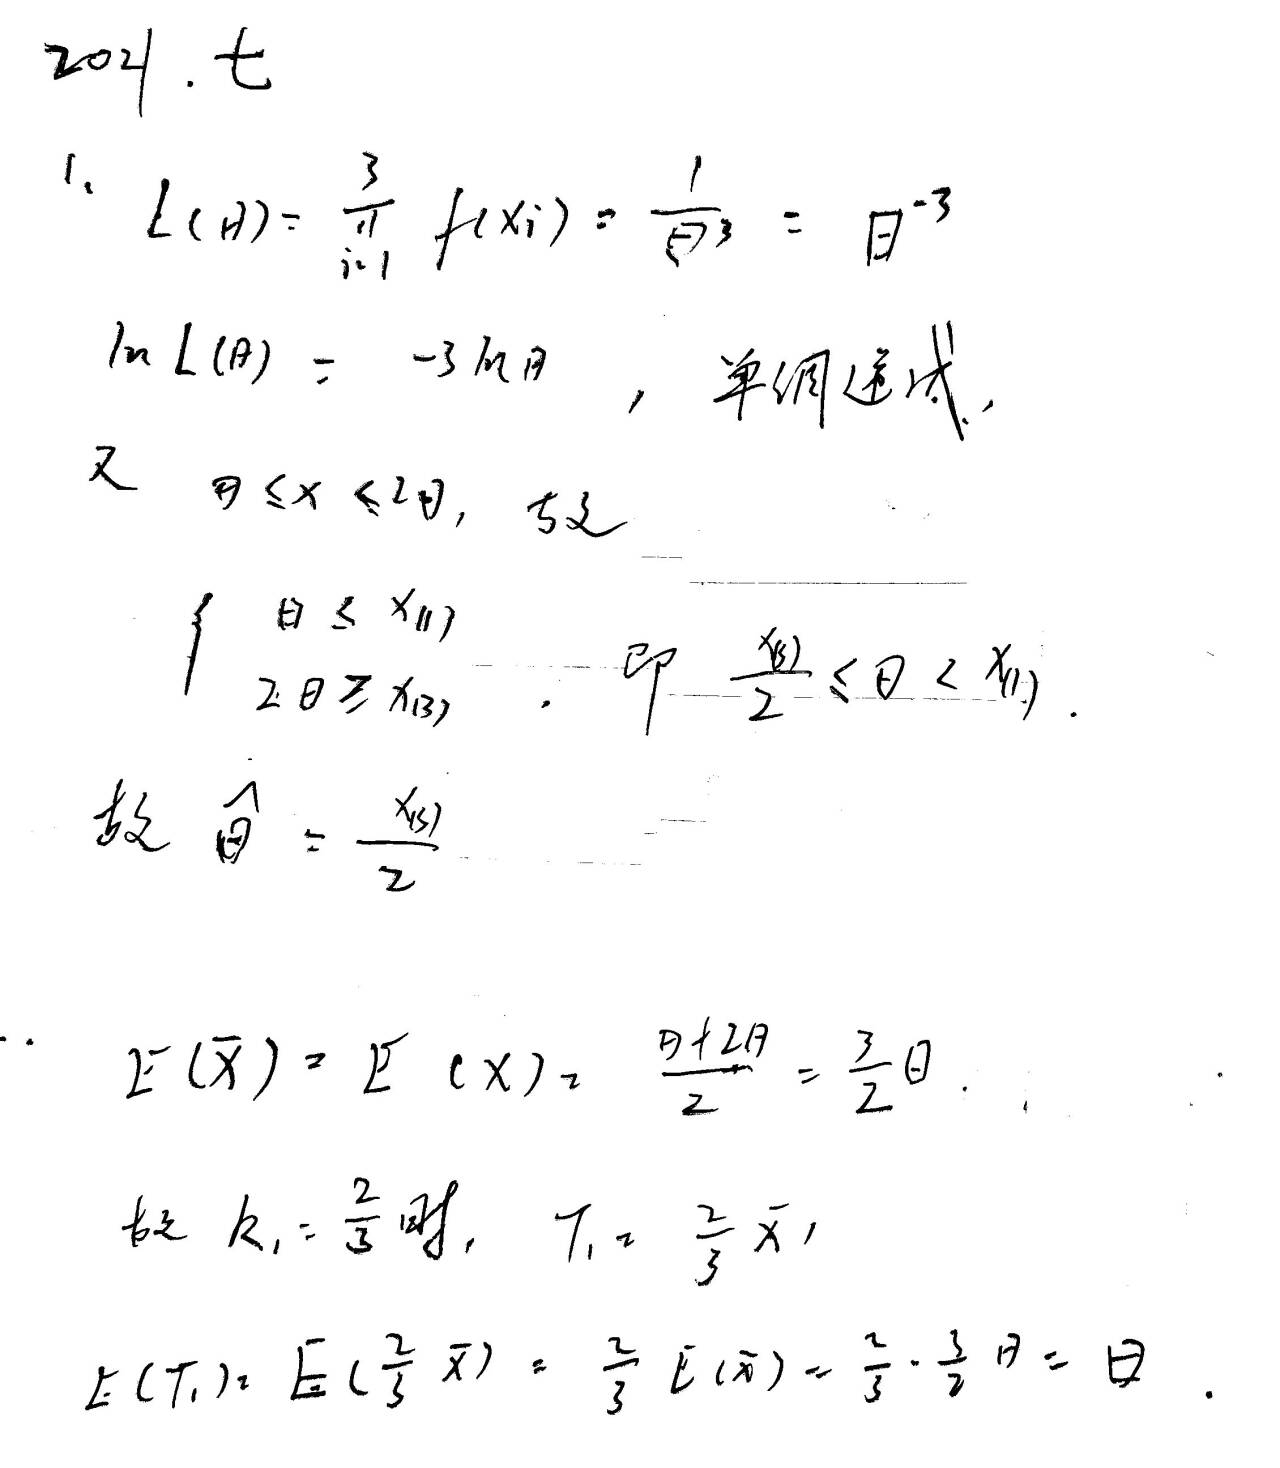 2021.七
1. L(θ)=∏_{i=1}^{3} f(xi)=1/θ³=θ⁻³
ln L(θ)=-3lnθ,单调递减,
又 θ≤x≤2θ,故
{ θ≤x₍₁₎
2θ≥x₍₃₎. 即 x₍₃₎/2≤θ<x₍₁₎.
故 θ̂=x₍₃₎/2
E(X̄)=E(X)=(θ+2θ)/2=3/2θ.
故 k₁=2/3时,T₁=2/3X̄,
E(T₁)=E(2/3X̄)=2/3E(X̄)=2/3·3/2θ=θ.